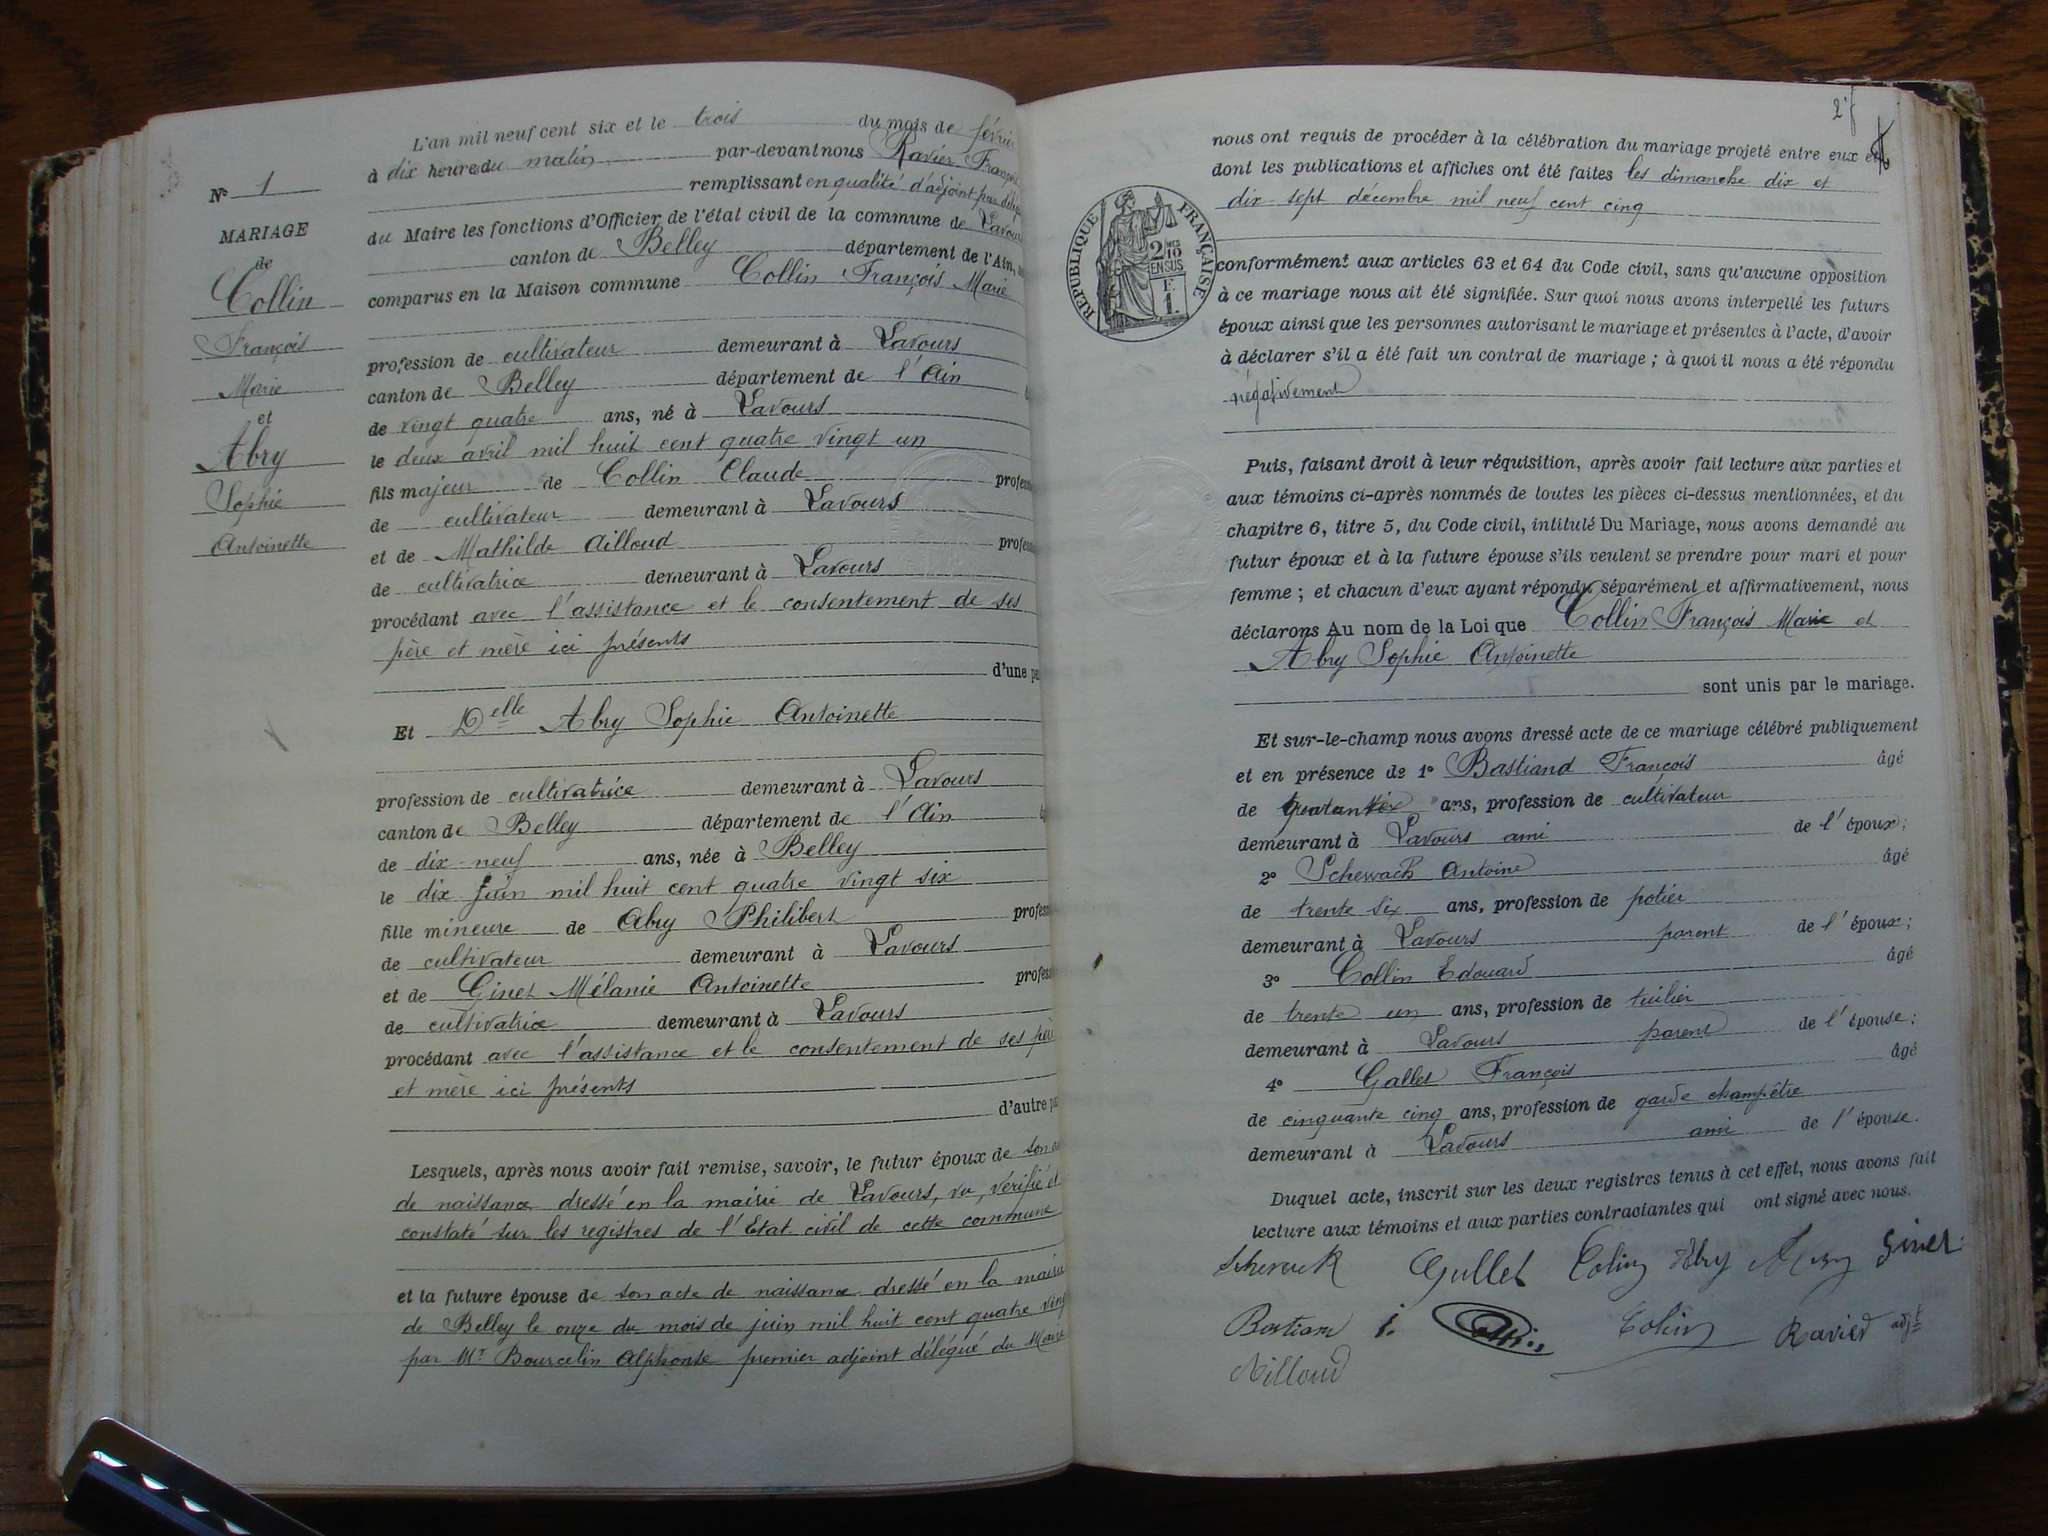 L'an mil neuf cent six et le trois du mois de février
à dix heures du matin par-devant nous Ravier François
remplissant en qualité d'adjoint par
du Maire les fonctions d'Officier de l'état civil de la commune de Lavours
canton de Belley département de l'Ain,
comparus en la Maison commune Collin François Marie
N° 1
MARIAGE
de
Collin
François
Marie
et
Abry
Sophie
Antoinette
profession de cultivateur demeurant à Lavours
canton de Belley département de l'Ain
de vingt quatre ans, né à Lavours
le deux avril mil huit cent quatre vingt un
fils majeur de Collin Claude
de cultivateur demeurant à Lavours
et de Mathilde Ailloud
de cultivatrice demeurant à Lavours
procédant avec l'assistance et le consentement de ses
père et mère ici présents
d'une
Et Delle Abry Sophie Antoinette
profession de cultivatrice demeurant à Lavours
canton de Belley département de l'Ain
de dix-neuf ans, née à Belley
le dix juin mil huit cent quatre vingt six
fille mineure de Abry Philibert
de cultivateur demeurant à Lavours
et de Ginet Mélanie Antoinette
de cultivatrice demeurant à Lavours
procédant avec l'assistance et le consentement de ses père
et mère ici présents
d'autre
Lesquels, après nous avoir fait remise, savoir, le futur époux de son
de naissance dressé en la mairie de Lavours, vu, vérifié et
constaté sur les registres de l'Etat civil de cette commune
et la future épouse de son acte de naissance dressé en la mairie
de Belley le onze du mois de juin mil huit cent quatre
par Mr Bourcelin Alphonse premier adjoint délégué du Maire
nous ont requis de procéder à la célébration du mariage projeté entre eux et
dont les publications et affiches ont été faites les dimanche dix et
dix-sept décembre mil neuf cent cinq
RÉPUBLIQUE FRANÇAISE
2/10
EN SUS
F.
1.
conformément aux articles 63 et 64 du Code civil, sans qu'aucune opposition
à ce mariage nous ait été signifiée. Sur quoi nous avons interpellé les futurs
époux ainsi que les personnes autorisant le mariage et présentes à l'acte, d'avoir
à déclarer s'il a été fait un contrat de mariage ; à quoi il nous a été répondu
négativement
Puis, faisant droit à leur réquisition, après avoir fait lecture aux parties et
aux témoins ci-après nommés de toutes les pièces ci-dessus mentionnées, et du
chapitre 6, titre 5, du Code civil, intitulé Du Mariage, nous avons demandé au
futur époux et à la future épouse s'ils veulent se prendre pour mari et pour
femme ; et chacun d'eux ayant répondu séparément et affirmativement, nous
déclarons Au nom de la Loi que Collin François Marie et
Abry Sophie Antoinette
sont unis par le mariage.
Et sur-le-champ nous avons dressé acte de ce mariage célébré publiquement
et en présence de 1° Bastiand François âgé
de ans, profession de cultivateur
demeurant à Lavours ami de l'époux ;
2° Schewach Antoine âgé
de trente six ans, profession de potier
demeurant à Lavours parent de l'époux ;
3° Collin Edouard âgé
de trente un ans, profession de tuilier
demeurant à Lavours parent de l'épouse ;
4° Gallet François âgé
de cinquante cinq ans, profession de garde champêtre
demeurant à Lavours ami de l'épouse.
Duquel acte, inscrit sur les deux registres tenus à cet effet, nous avons fait
lecture aux témoins et aux parties contractantes qui ont signé avec nous.
Gullet Colin Abry Abry Ginet
Colin Ravier adjt
Ailloud